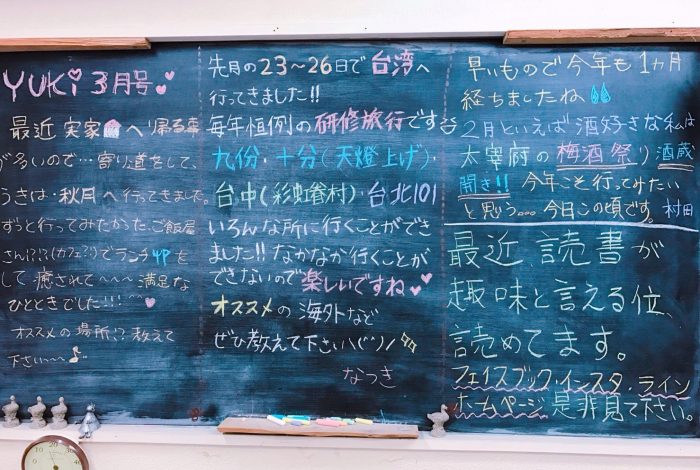 YUKi 3月号
最近 実家へ帰る事
が多いので…寄り道をして、
うきは・秋月へ行ってきました。
ずっと行ってみたかったご飯屋
さん!?!?(カフェ?)でランチ
して癒されて〜〜〜満足な
ひとときでした!!!
オススメの場所!?教えて
下さい〜〜♪
先月の23〜26日で台湾へ
行ってきました!!
毎年恒例の研修旅行です
九份・十分(天燈上げ)・
台中(彩虹眷村)・台北101
いろんな所に行くことができ
ました!!なかなか行くことが
できないので楽しいですね
オススメの海外など
ぜひ教えて下さい\(^^)/
なつき
早いもので今年も1ヵ月
経ちましたね
2月といえば酒好きな私は
太宰府の梅酒祭り酒蔵
開き!! 今年こそ行ってみたい
と思う…。今日この頃です。村田
最近 読書が
趣味と言える位、
読めてます。
フェイスブック・インスタ・ライン
ホームページ是非見て下さい。